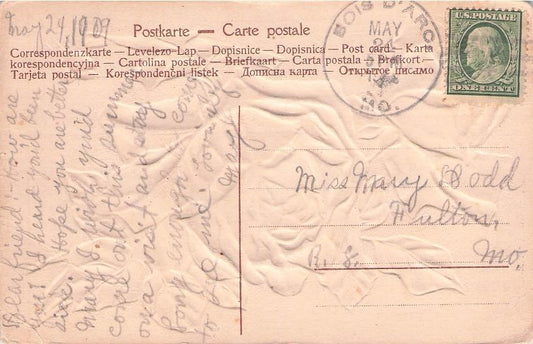 May 24, 1909
Postkarte — Carte postale
Correspondenzkarte — Levelezo-Lap — Dopisnice — Dopisnica — Post card — Karta
korespondencyjna — Cartolina postale — Briefkaart — Carta postala — Brefkort—
Tarjeta postal — Korespondenčni listek — Дописна карта — Открытое письмо
BOIS D'ARC
MAY
24
MO.
U.S. POSTAGE
ONE CENT
Dear friend: How are
you? I heard you'd been
sick. Hope you are better
Mary I wish you'd
come out this summer
on a visit and stay
long enough
to
Mary
Miss Mary Dodd
Fulton,
Mo.
R. F.